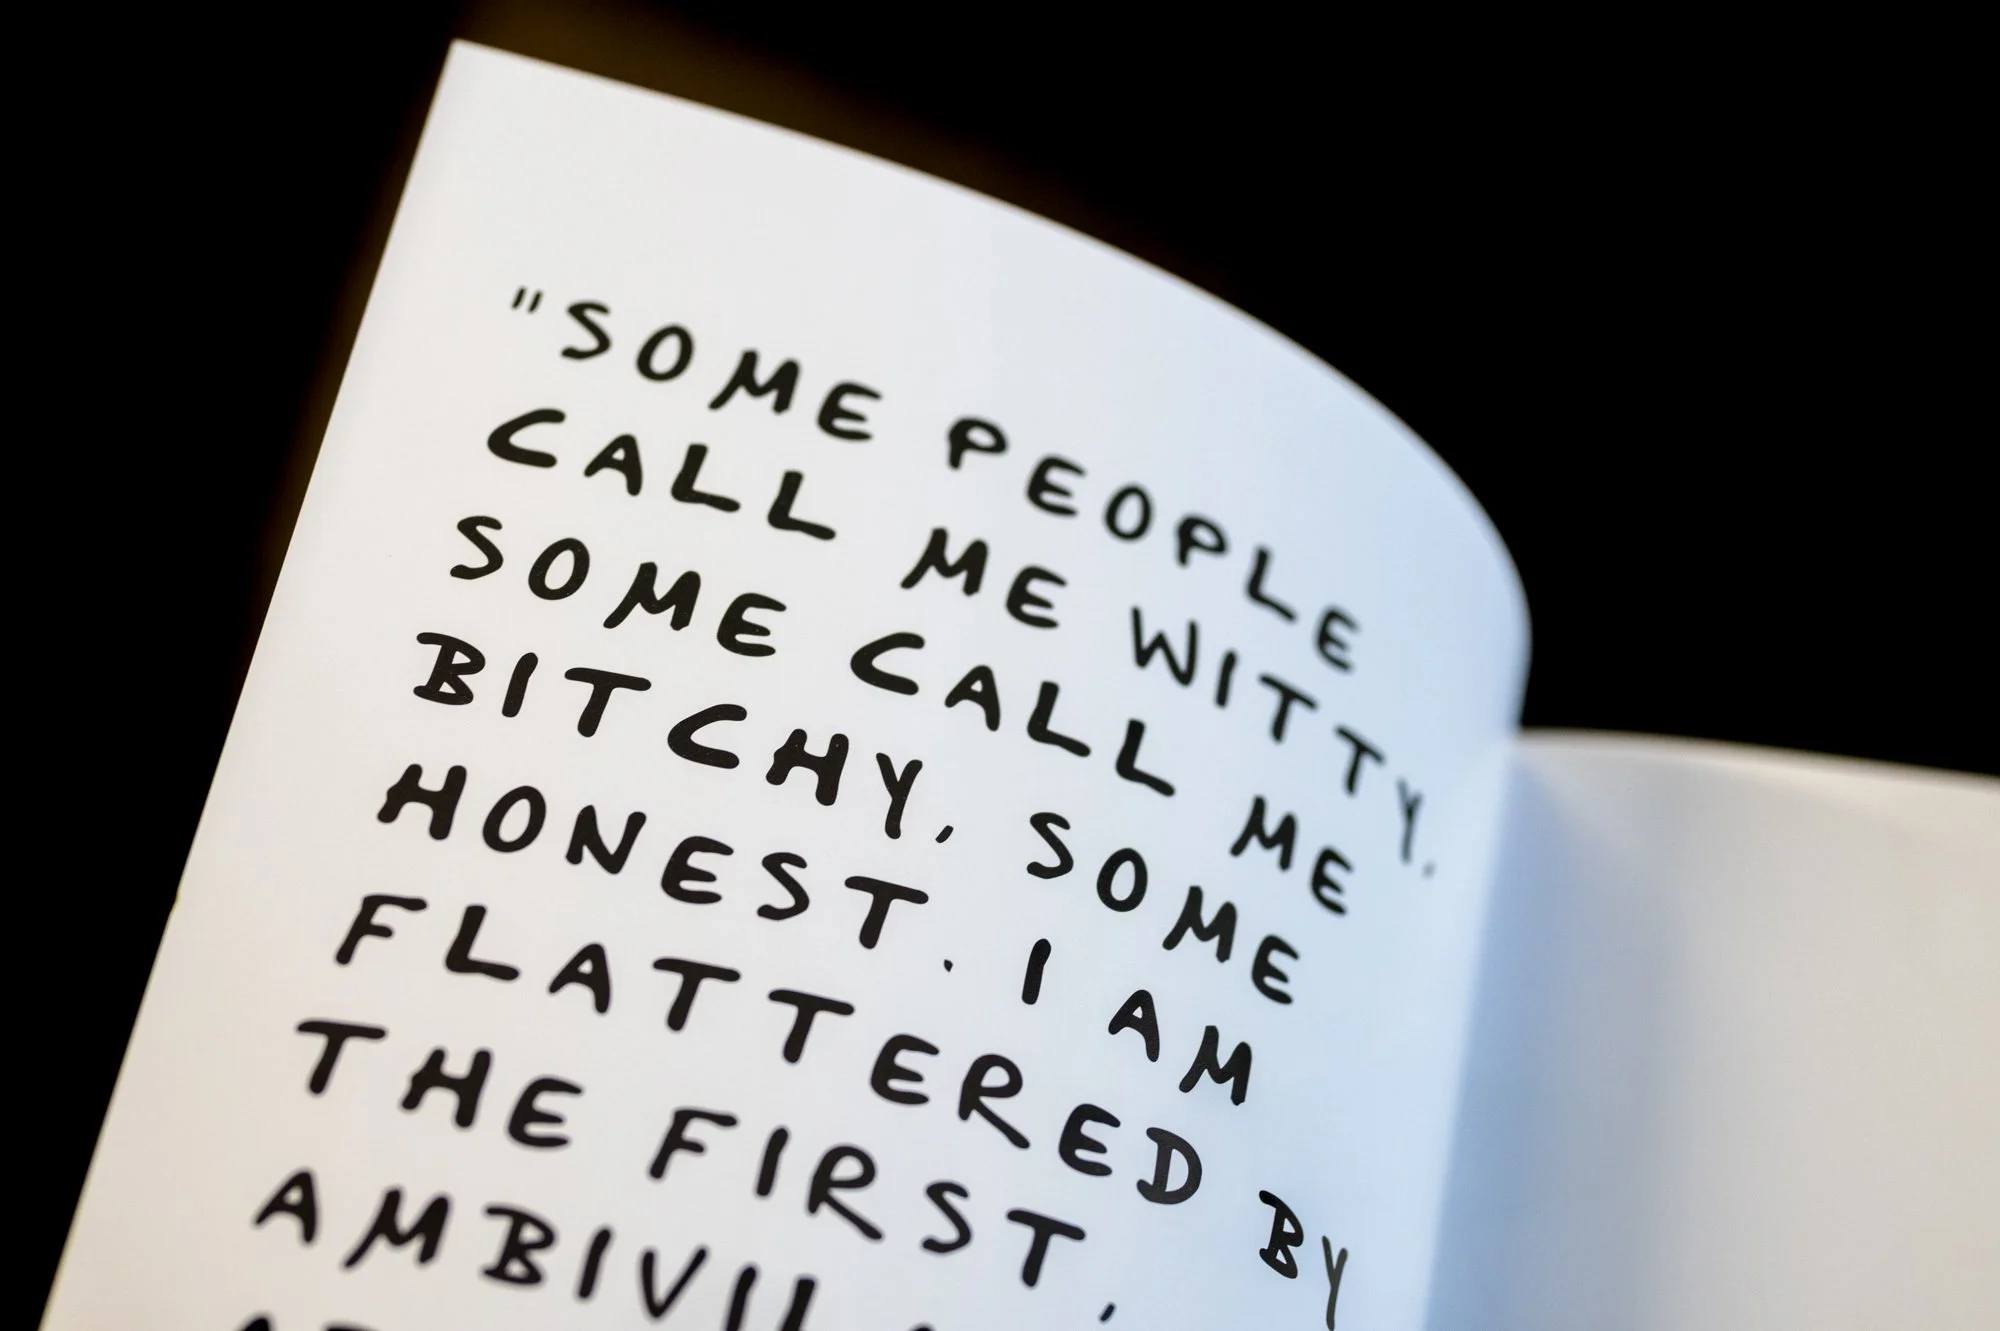 "SOME PEOPLE
CALL ME WITTY,
SOME CALL ME
BITCHY, SOME
HONEST. I AM
FLATTERED BY
THE FIRST,